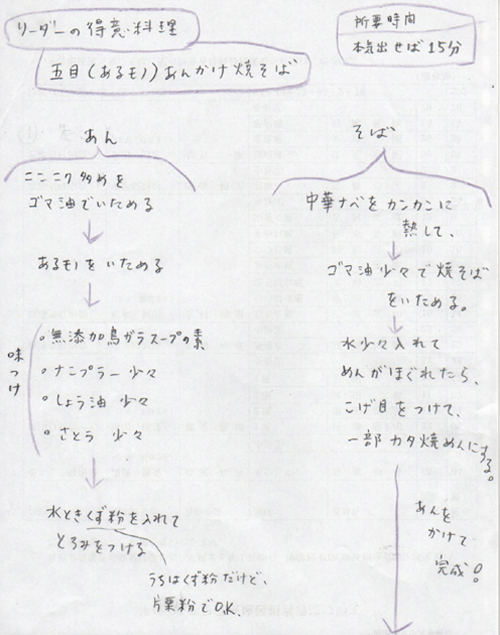 リーダーの得意料理
五目(あるモノ)あんかけ焼そば
所要時間
本気出せば15分
あん
ニンニク多めを
ゴマ油でいためる
あるモノをいためる
味つけ
・無添加鳥ガラスープの素
・ナンプラー少々
・しょう油 少々
・さとう 少々
水ときくず粉を入れて
とろみをつける
うちはくず粉だけど、
片栗粉でOK.
そば
中華ナベをカンカンに
熱して、
ゴマ油少々で焼そば
をいためる。
水少々入れて
めんがほぐれたら、
こげ目をつけて、
一部カタ焼めんにする。
あんを
かけて
完成!